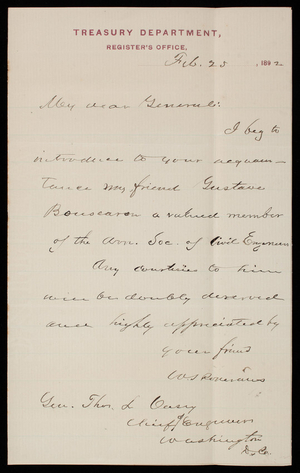 TREASURY DEPARTMENT,
REGISTER'S OFFICE,
Feb. 25, 1892
My dear General:
I beg to
introduce to your acquain-
tance my friend Gustave
Bouscaren a valued member
of the Am. Soc. of Civil Engineers
Any courtesies to him
will be doubly deserved
and highly appreciated by
your friend
W S Rosecrans
Gen. Thos. L Casey
Chief of Engineers
Washington
D.C.